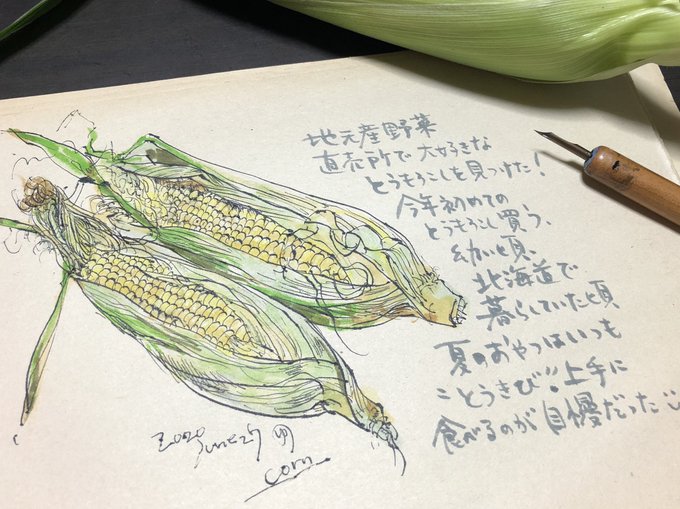 地元産野菜
直売所で大好きな
とうもろこしを見つけた!
今年初めての
とうもろこし買う、
幼い頃、
北海道で
暮らしていた頃
夏のおやつはいつも
こ とうきび"上手に
食べるのが自慢だった
2020 June 29 月
corn